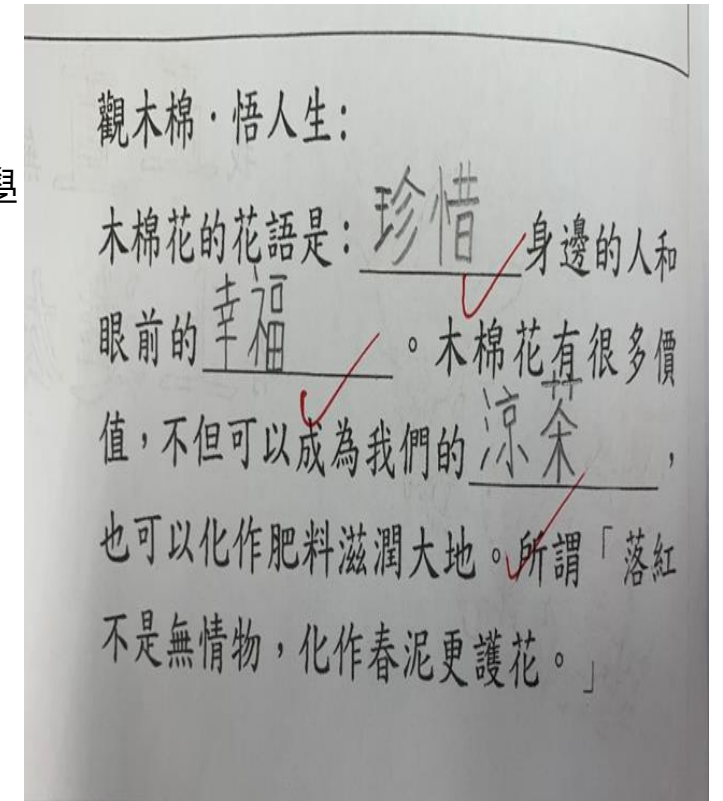 學
觀木棉·悟人生:
木棉花的花語是:珍惜身邊的人和
眼前的幸福。木棉花有很多價
值,不但可以成為我們的涼茶,
也可以化作肥料滋潤大地。所謂「落紅
不是無情物,化作春泥更護花。」